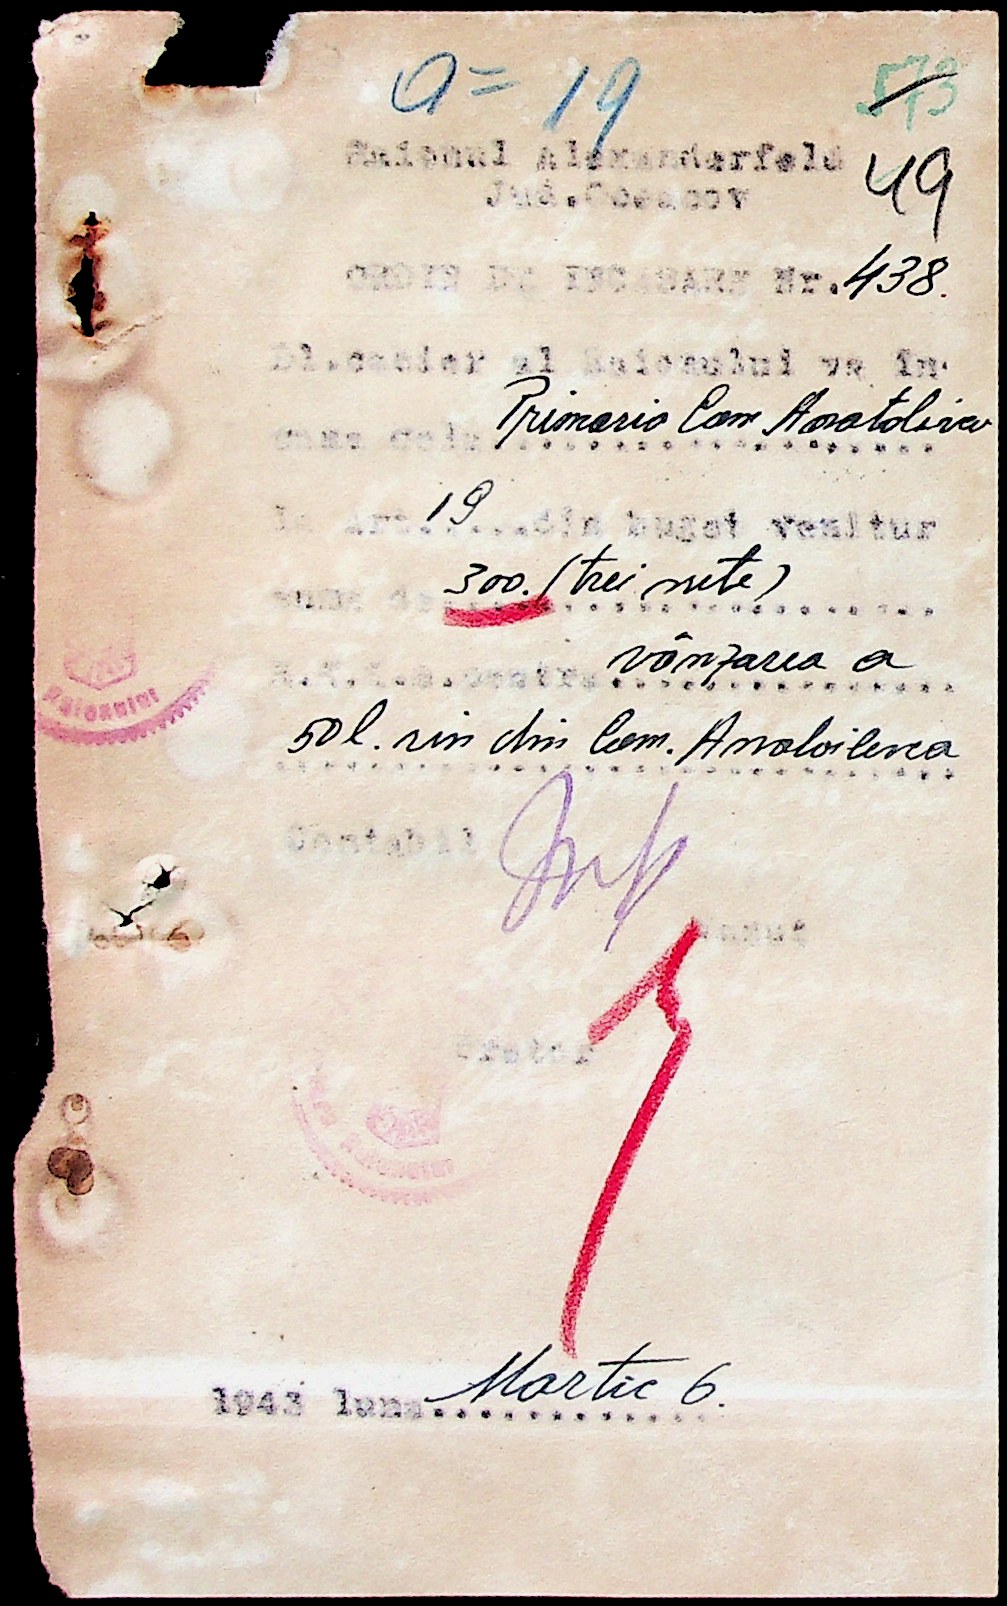 a = 19
573
49
Raionul Alexanderfeld
Jud.
ORDIN DE INCASARE Nr. 438.
Dl.casier al Raionului va în-
casa dela Primaria Com. Anatolievca
la Art. 19 din buget venitur
suma de 300. (trei sute)
vânzarea a
50 l. vin din Com.
Contabil
Pretor
1943 luna Martie 6.
Raionului
Raionului